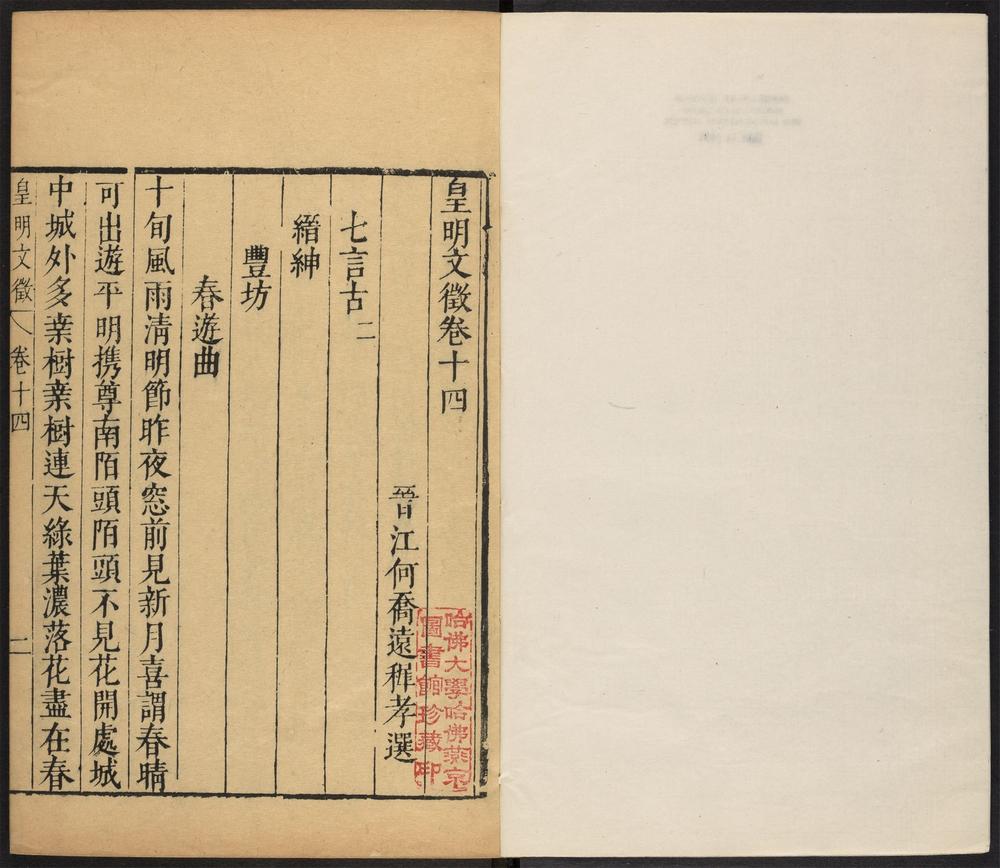 皇明文徵卷十四
晉江何喬遠穉孝選
七言古二
縉紳
豐坊
春遊曲
十旬風雨清明節昨夜窓前見新月喜謂春晴
可出遊平明携尊南陌頭陌頭不見花開處城
中城外多桒樹桒樹連天綠葉濃落花盡在春
皇明文徵
卷十四
一
哈佛大學哈佛燕京
圖書館珍藏印